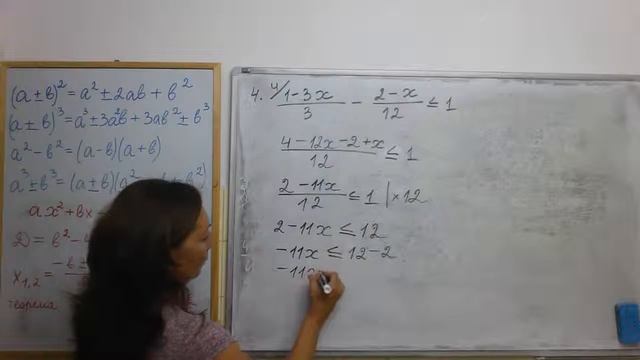 (a ± b)² = a² ± 2ab + b²
(a ± b)³ = a³ ± 3a²b + 3ab² ± b³
a² − b² = (a − b)(a + b)
a³ ± b³ = (a ± b)(a²
ax² + bx
D = b² − 4
x₁,₂ = −b ±
теорема
4. ⁴/ (1 − 3x)/3 − (2 − x)/12 ≤ 1
(4 − 12x − 2 + x)/12 ≤ 1
(2 − 11x)/12 ≤ 1 | × 12
2 − 11x ≤ 12
−11x ≤ 12 − 2
−11x